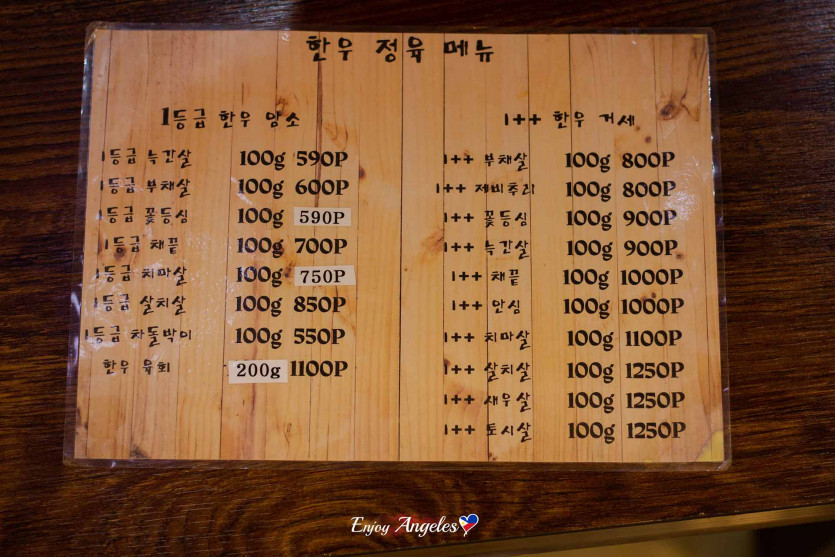 한우 정육 메뉴
1등급 한우 암소
1등급 늑간살 100g 590P
1등급 부채살 100g 600P
1등급 꽃등심 100g 590P
1등급 채끝 100g 700P
1등급 치마살 100g 750P
1등급 살치살 100g 850P
1등급 차돌박이 100g 550P
한우 육회 200g 1100P
1++ 한우 거세
1++ 부채살 100g 800P
1++ 제비추리 100g 800P
1++ 꽃등심 100g 900P
1++ 늑간살 100g 900P
1++ 채끝 100g 1000P
1++ 안심 100g 1000P
1++ 치마살 100g 1100P
1++ 살치살 100g 1250P
1++ 새우살 100g 1250P
1++ 토시살 100g 1250P
Enjoy Angeles